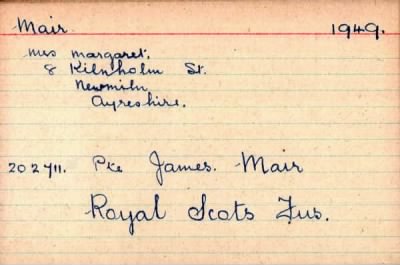 Mair 1949.
Mrs Margaret.
8 Kilnholm St.
Newmiln
Ayreshire.
202711. Pte James. Mair
Royal Scots Fus.